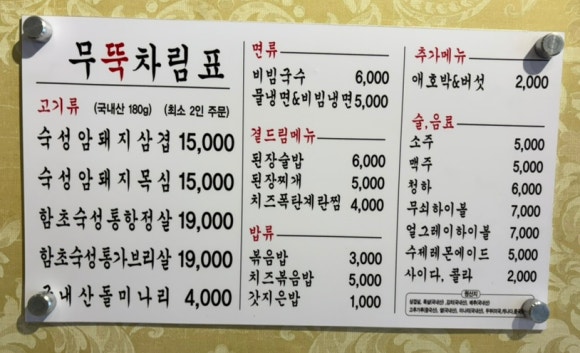 무뚝차림표
고기류 (국내산 180g) (최소 2인 주문)
숙성암돼지삼겹 15,000
숙성암돼지목심 15,000
함초숙성통항정살 19,000
함초숙성통가브리살 19,000
내산돌미나리 4,000
면류
비빔국수 6,000
물냉면&비빔냉면 5,000
곁드림메뉴
된장술밥 6,000
된장찌개 5,000
치즈폭탄계란찜 4,000
밥류
볶음밥 3,000
치즈볶음밥 5,000
갓지은밥 1,000
추가메뉴
애호박&버섯 2,000
술,음료
소주 5,000
맥주 5,000
청하 6,000
무쇠하이볼 7,000
얼그레이하이볼 7,000
수제레몬에이드 5,000
사이다, 콜라 2,000
원산지